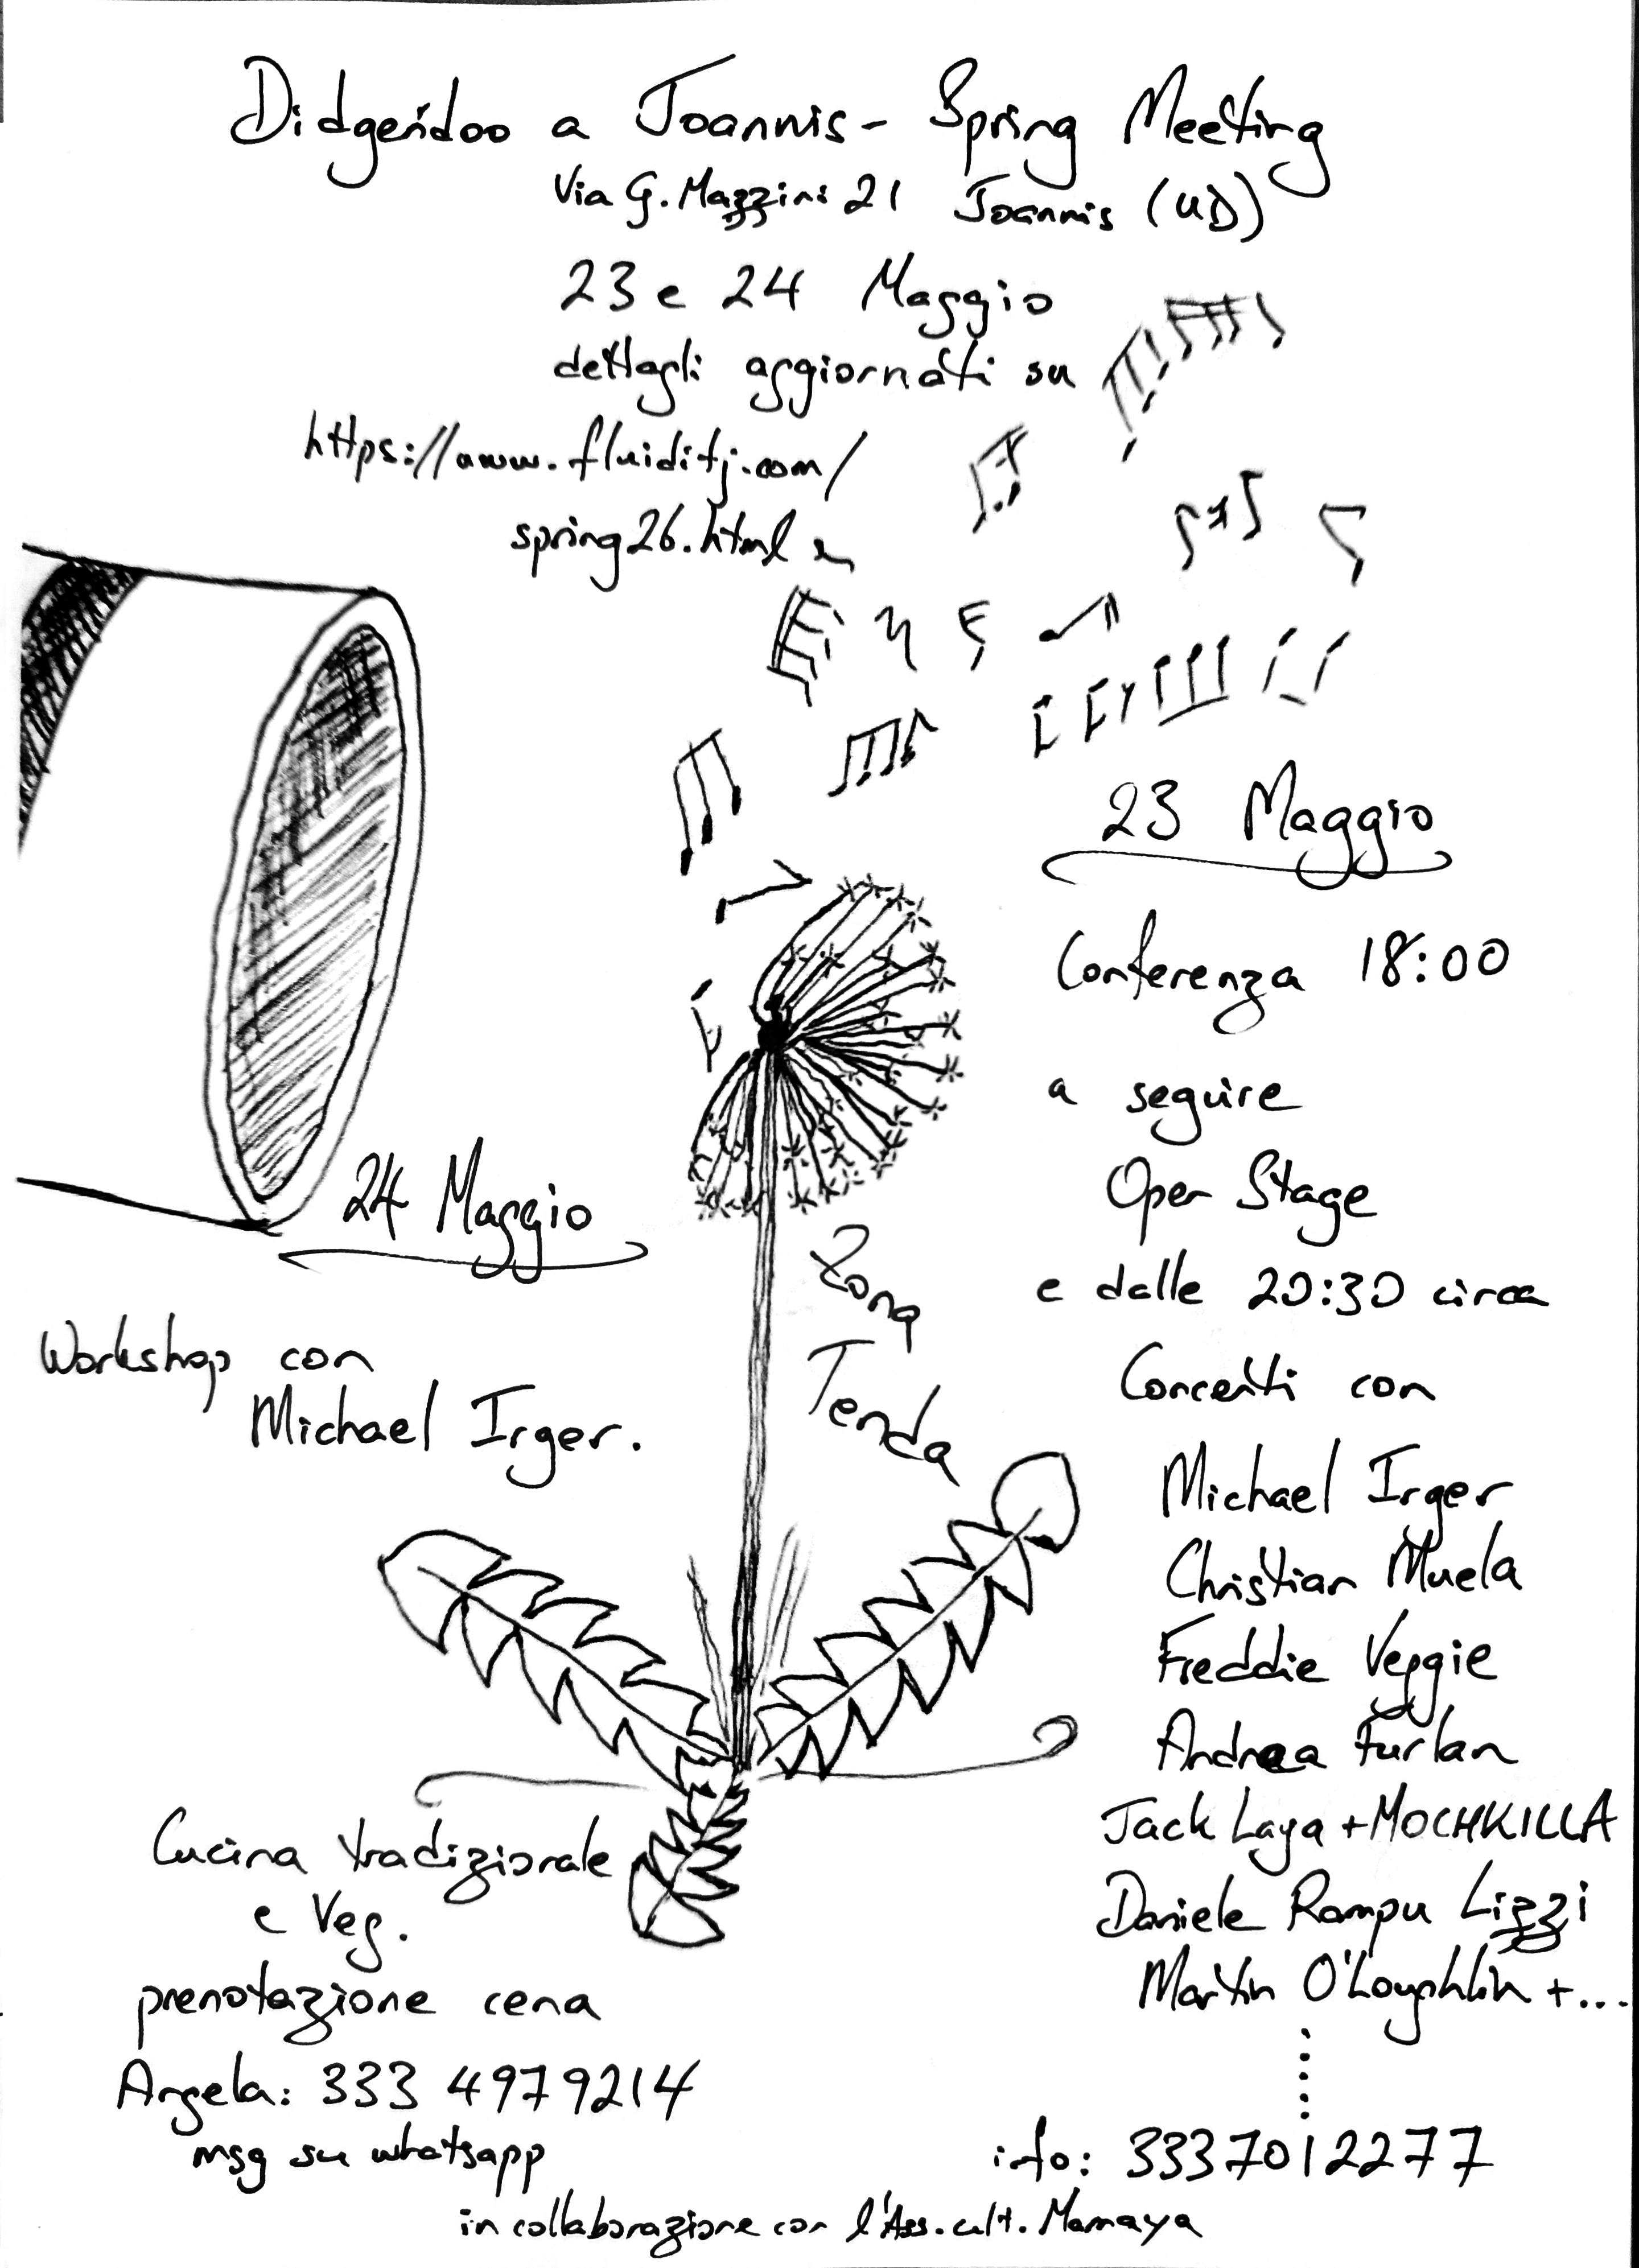 Didgeridoo a Joannis - Spring Meeting
Via G. Mazzini 21 Joannis (UD)
23 e 24 Maggio
dettagli aggiornati su
https://www.fluiditj.com/
spring26.html
23 Maggio
Conferenza 18:00
a seguire
Open Stage
e dalle 20:30 circa
Concerti con
Michael Irger
Christian Muela
Freddie Veggie
Andrea Furlan
Jack Laya + MOCHKILLA
Daniele Rampu Lizzi
Martin O'Loughlin + ...
info: 3337012277
24 Maggio
Workshop con
Michael Irger.
Zona
Tenda
Cucina tradizionale
e Veg.
prenotazione cena
Angela: 333 4979214
msg su whatsapp
in collaborazione con l'Ass. cult. Mamaya